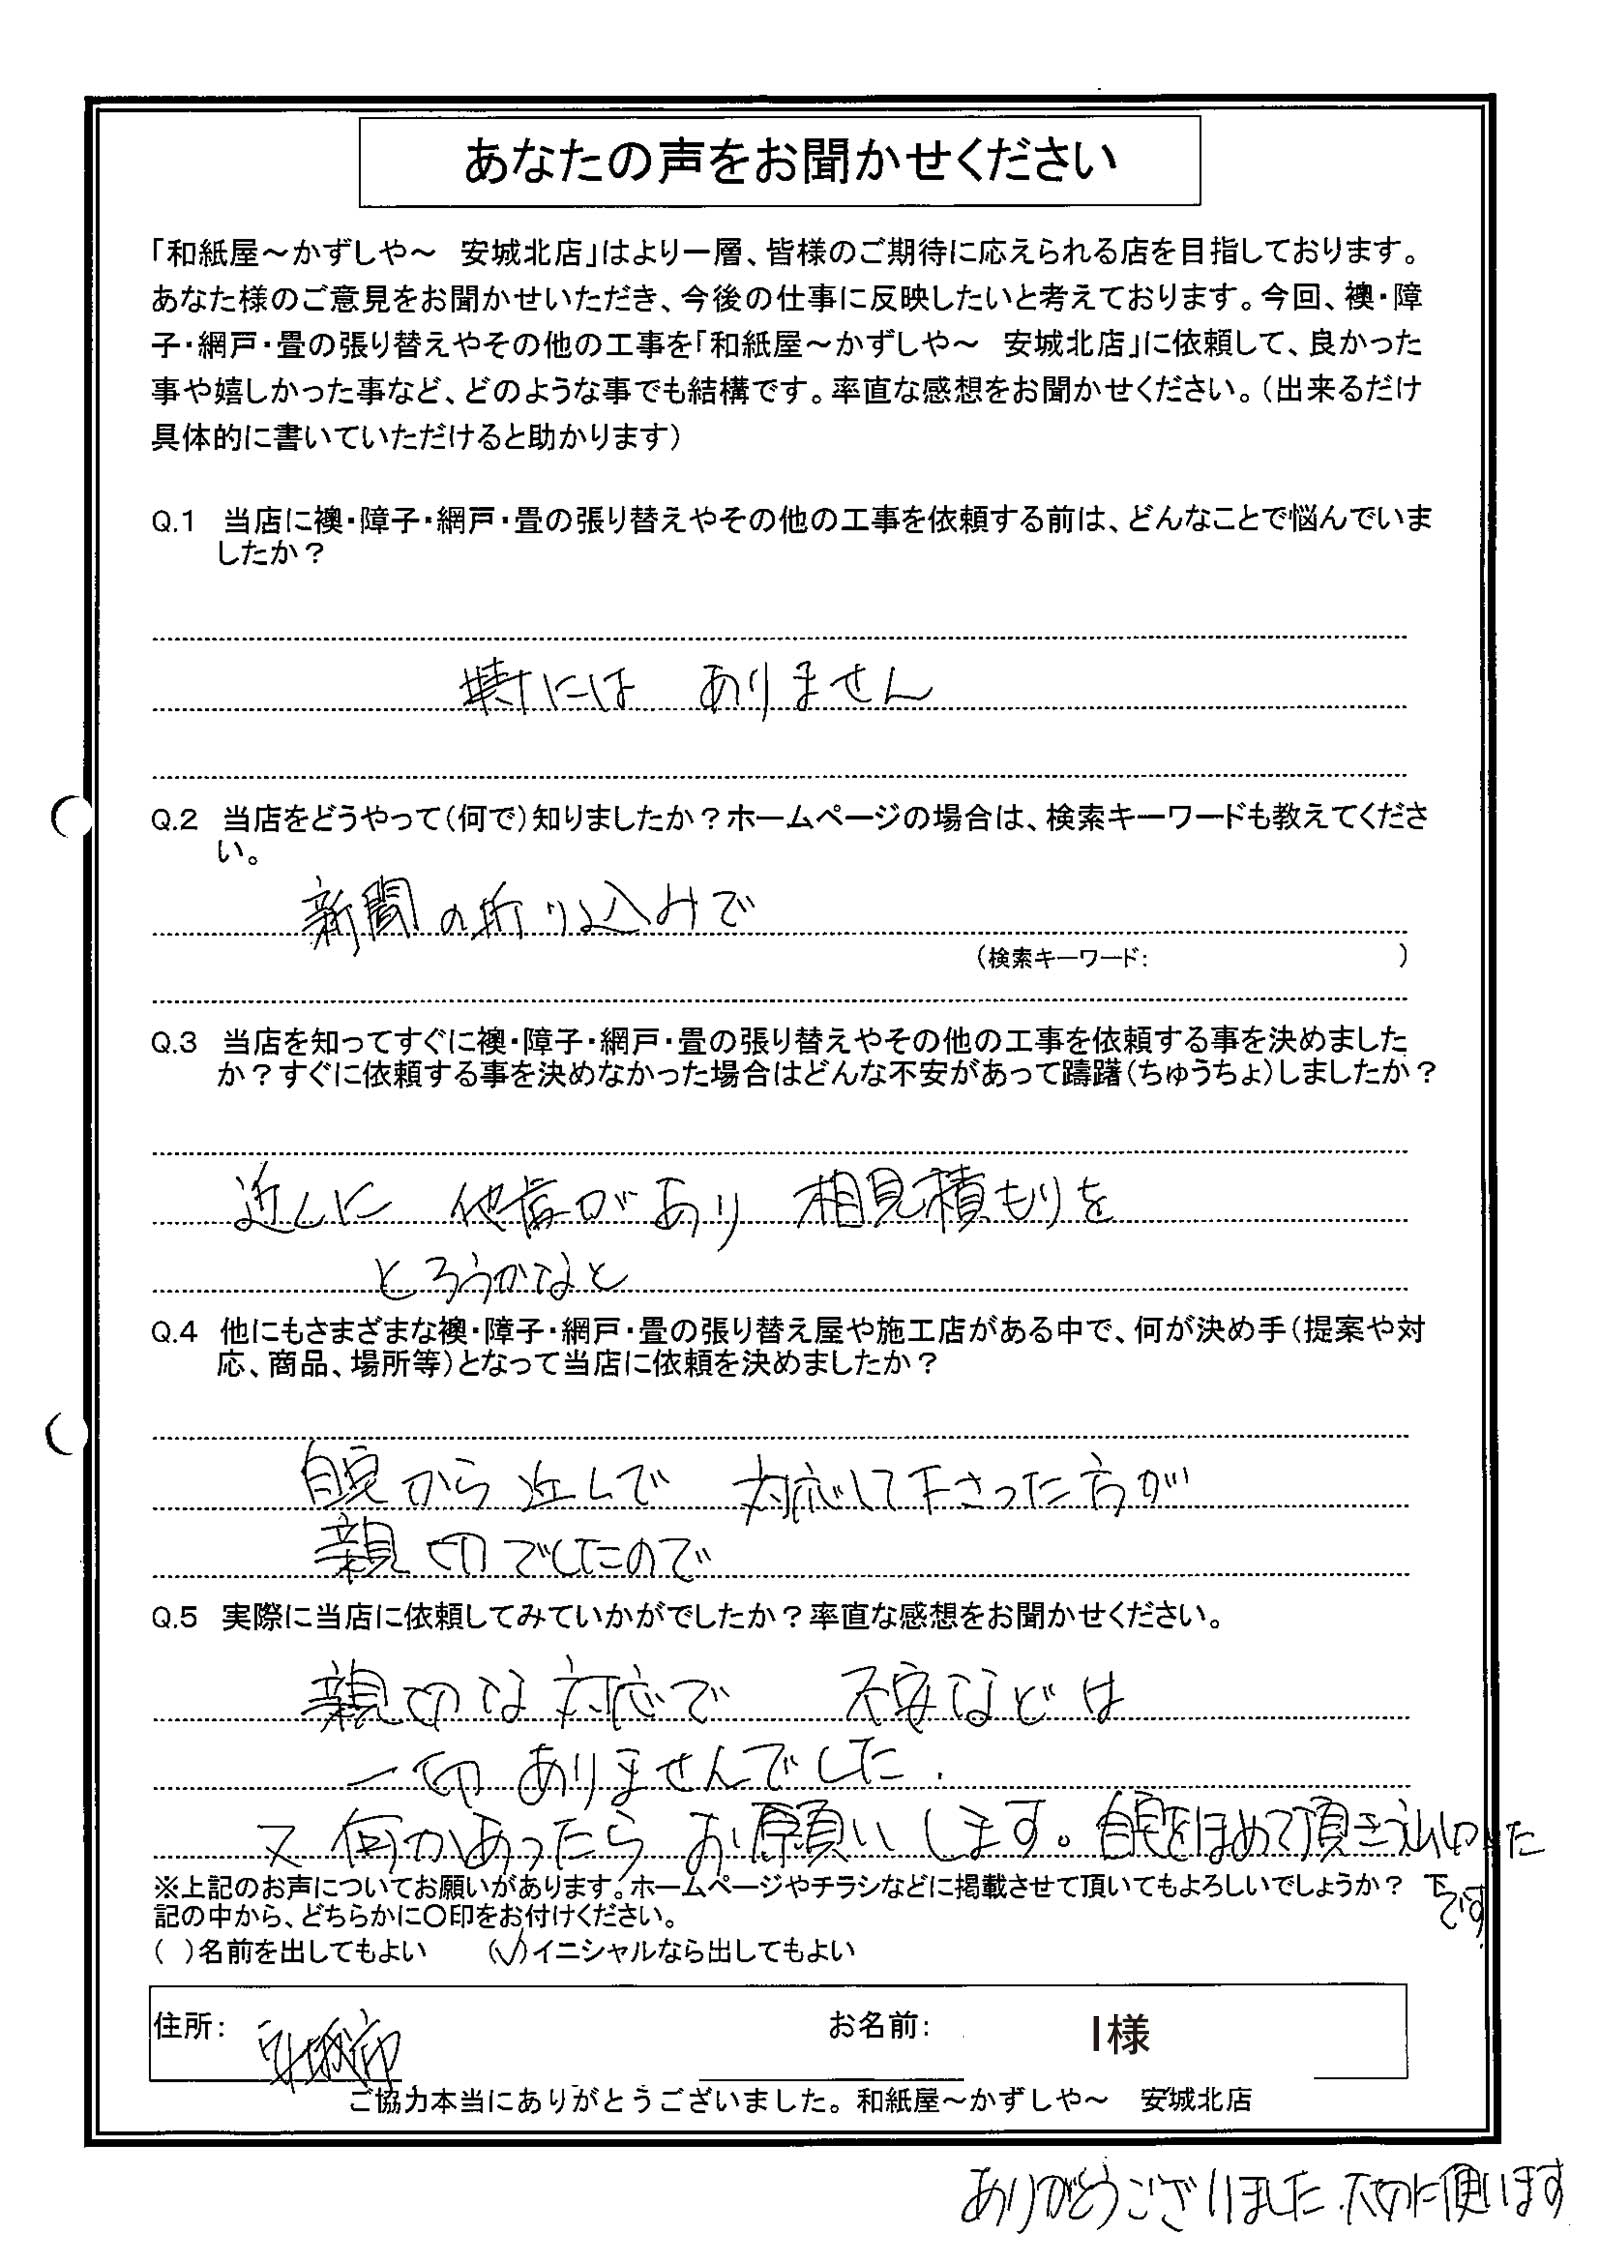 あなたの声をお聞かせください
「和紙屋～かずしや～　安城北店」はより一層、皆様のご期待に応えられる店を目指しております。
あなた様のご意見をお聞かせいただき、今後の仕事に反映したいと考えております。今回、襖・障
子・網戸・畳の張り替えやその他の工事を「和紙屋～かずしや～　安城北店」に依頼して、良かった
事や嬉しかった事など、どのような事でも結構です。率直な感想をお聞かせください。（出来るだけ
具体的に書いていただけると助かります）
Q.1　当店に襖・障子・網戸・畳の張り替えやその他の工事を依頼する前は、どんなことで悩んでいま
したか？
特には　ありません
Q.2　当店をどうやって（何で）知りましたか？ホームページの場合は、検索キーワードも教えてくださ
い。
新聞の折り込みで
（検索キーワード：　　　　　）
Q.3　当店を知ってすぐに襖・障子・網戸・畳の張り替えやその他の工事を依頼する事を決めました
か？すぐに依頼する事を決めなかった場合はどんな不安があって躊躇（ちゅうちょ）しましたか？
近くに　他店があり　相見積もりを
とろうかなと
Q.4　他にもさまざまな襖・障子・網戸・畳の張り替え屋や施工店がある中で、何が決め手（提案や対
応、商品、場所等）となって当店に依頼を決めましたか？
自宅から近くで　対応して下さった方が
親切でしたので
Q.5　実際に当店に依頼してみていかがでしたか？率直な感想をお聞かせください。
親切な対応で　不安などは
一切ありませんでした.
又何かあったらお願いします。自宅をほめて頂き
です.
※上記のお声についてお願いがあります。ホームページやチラシなどに掲載させて頂いてもよろしいでしょうか？　下
記の中から、どちらかに〇印をお付けください。
（　）名前を出してもよい　　（✓）イニシャルなら出してもよい
住所：　安城市　お名前：　I様
ご協力本当にありがとうございました。和紙屋～かずしや～　安城北店
ありがとうございました.大切に使います